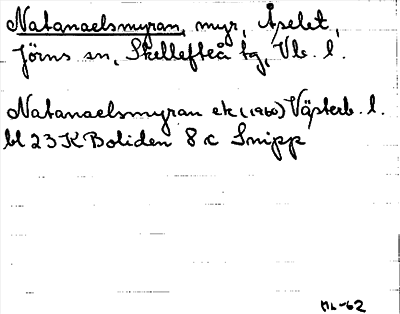 Natanaelsmyran, myr, Åselet,
Jörns sn, Skellefteå tg, Vb. l.
Natanaelsmyran ek (1960) Västerb. l.
bl 23 K Boliden 8 c Snipp
ML-62